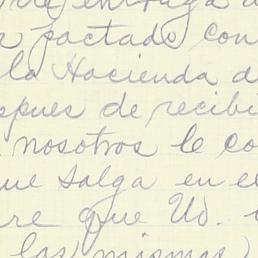 entrega
pactado con
la Hacienda d
spues de recibi
nosotros le co
ue salga en el
re que Ud.
las mismas